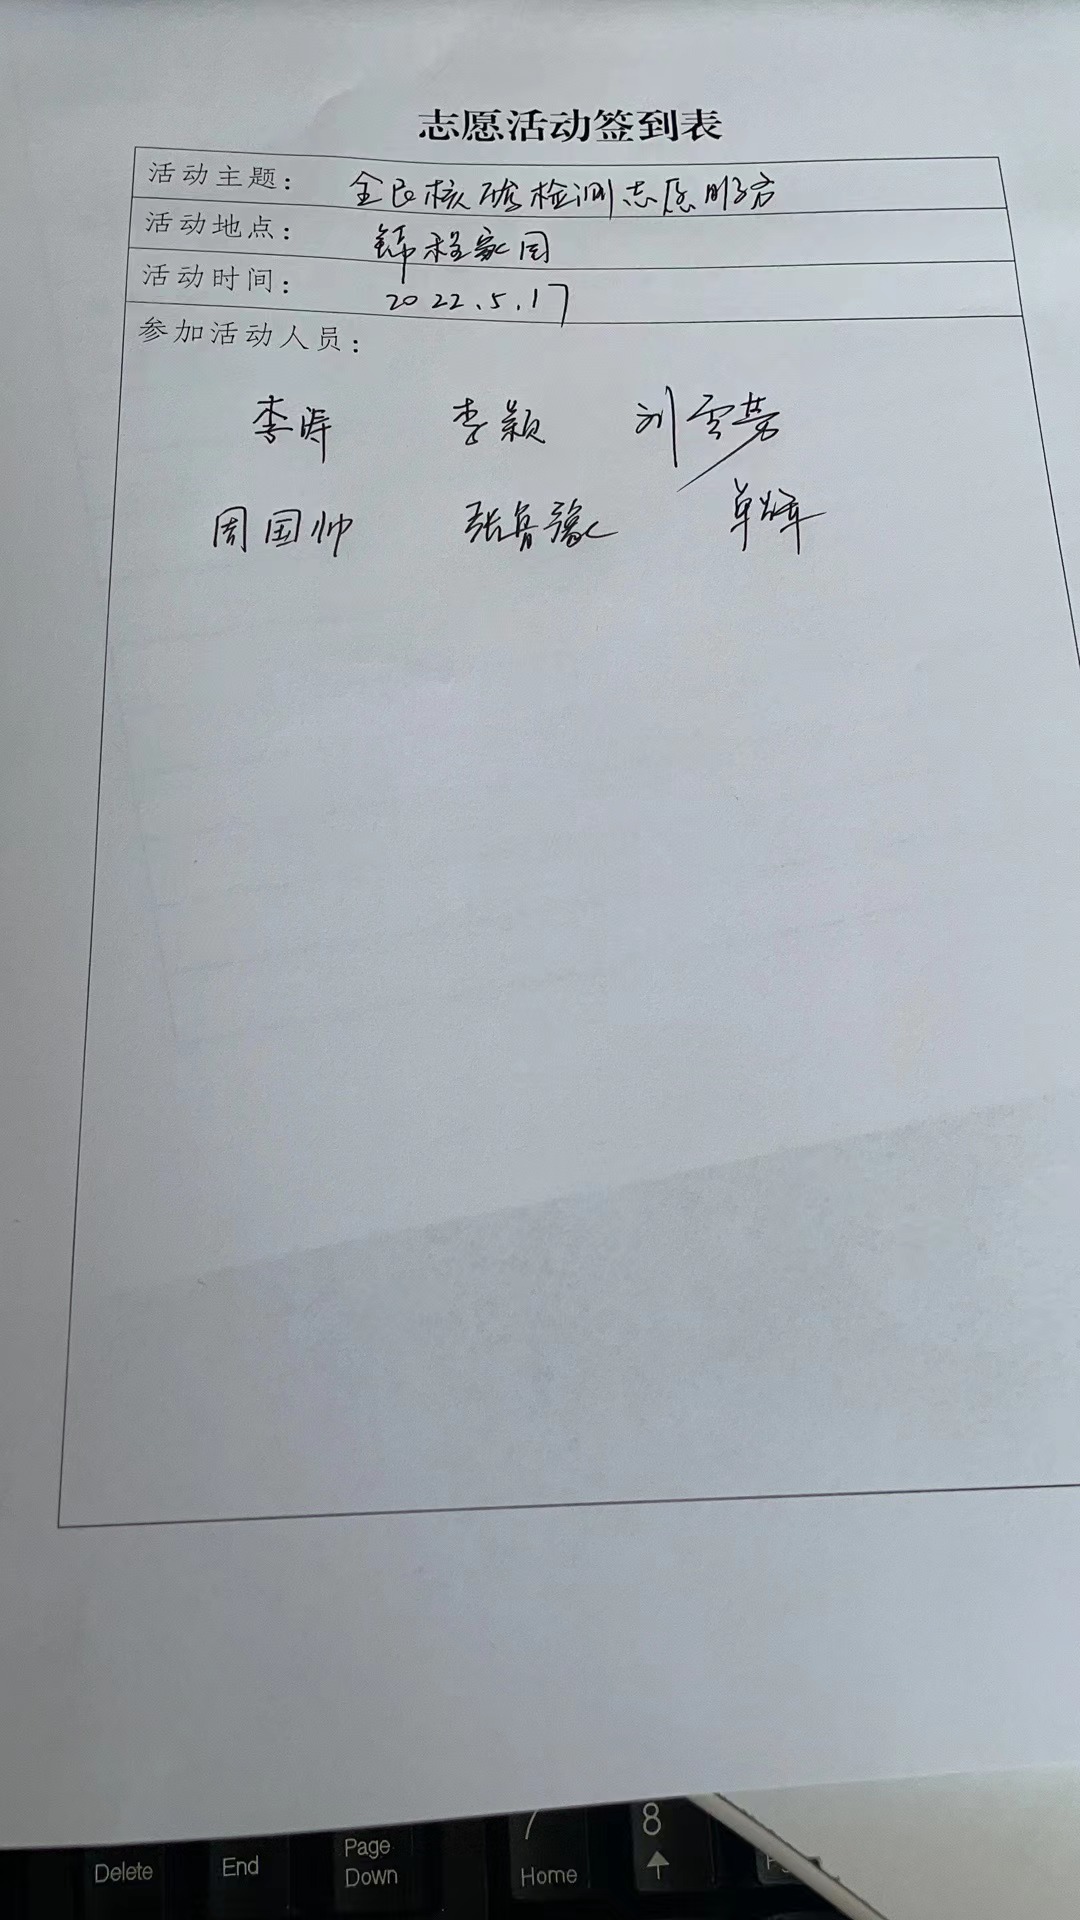 志愿活动签到表
活动主题: 全民核酸检测志愿服务
活动地点: 锦程家园
活动时间: 2022.5.17
参加活动人员:
李涛 李颖 刘雲芳
周国帅 张鲁豫 单辉
7 8
Delete End Page Down Home